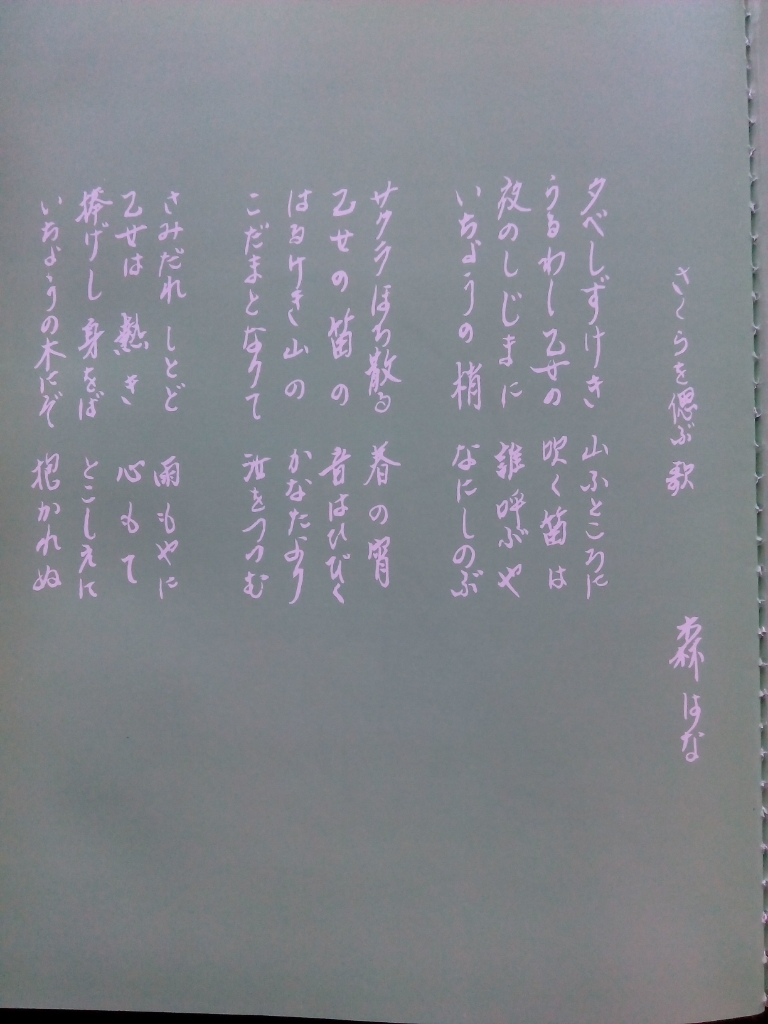 さくらを偲ぶ歌
森はな
夕べしずけき 山ふところに
うるわし乙女の 吹く笛は
夜のしじまに 誰呼ぶや
いちょうの梢 なにしのぶ
サクラほち散る 春の宵
乙女の笛の 音はひびく
はるけき山の かなたより
こだまとなりて 汝をつつむ
さみだれしとど 雨もやに
乙女は熱き 心もて
捧げし身をば とこしえに
いちょうの木にぞ 抱かれぬ